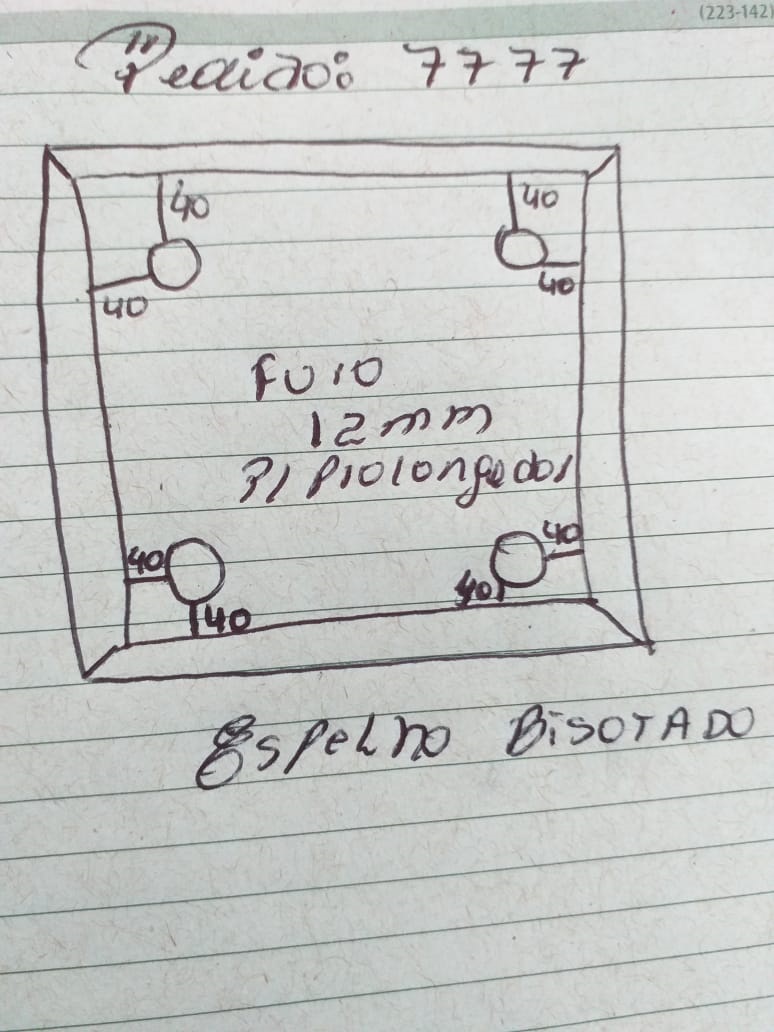 (223-142)
Pedido: 7777
40
40
40
40
Furo
12mm
P/ Prolongador
40
40
40
40
Espelho BISOTADO